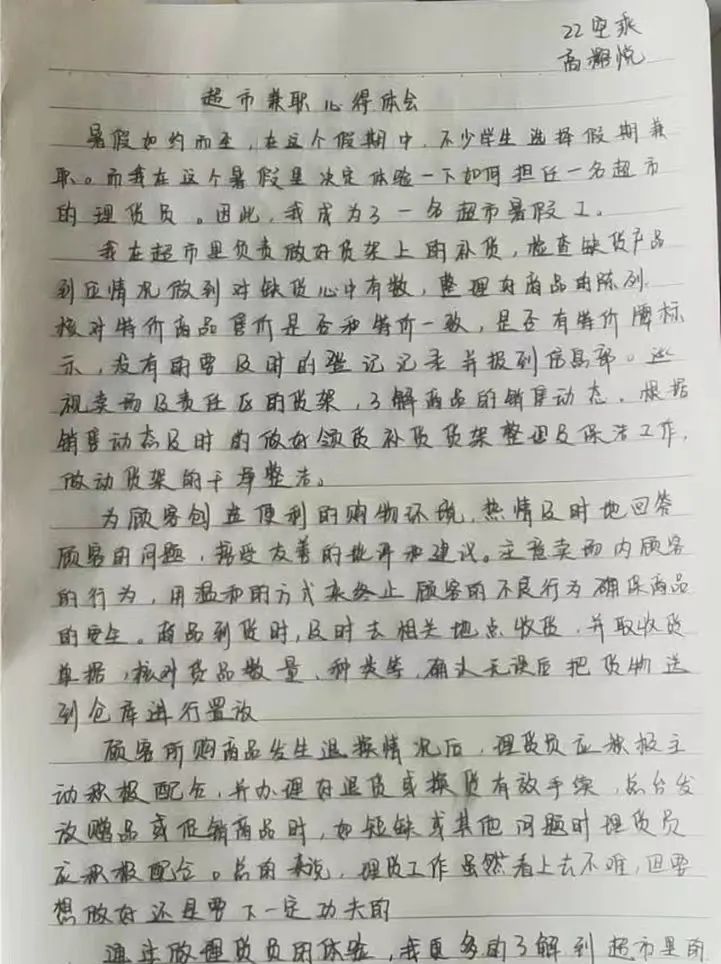 22空乘
高 悦
超市兼职心得体会
暑假如约而至，在这个假期中，不少学生选择假期兼
职。而我在这个暑假里决定体验一下如何担任一名超市
的理货员。因此，我成为了一名超市暑假工。
我在超市里负责做好货架上的补货，检查缺货产品
到店情况做到对缺货心中有数，整理好商品的陈列
核对特价商品售价是否和特价一致，是否有特价牌标
示，没有的要及时的登记记录并报到信息部。巡
视卖场及责任区的货架，了解商品的销售动态。根据
销售动态及时的做好领货补货货架整理及保洁工作，
做动货架的干净整洁。
为顾客创造便利的购物环境，热情及时地回答
顾客的问题，接受友善的批评和建议。注意卖场内顾客
的行为，用温和的方式来终止顾客的不良行为确保商品
的安全。商品到货时，及时去相关地点收货，并取收货
单据，核对货品数量、种类等，确认无误后把货物送
到仓库进行置放
顾客所购商品发生退换情况后，理货员应积极主
动积极配合，并办理好退货或换货有效手续，总台发
放赠品或促销商品时，如短缺或其他问题时理货员
应积极配合。总的来说，理货工作虽然看上去不难，但要
想做好还是要下一定功夫的
通过做理货员的体验，我更多的了解到超市里的